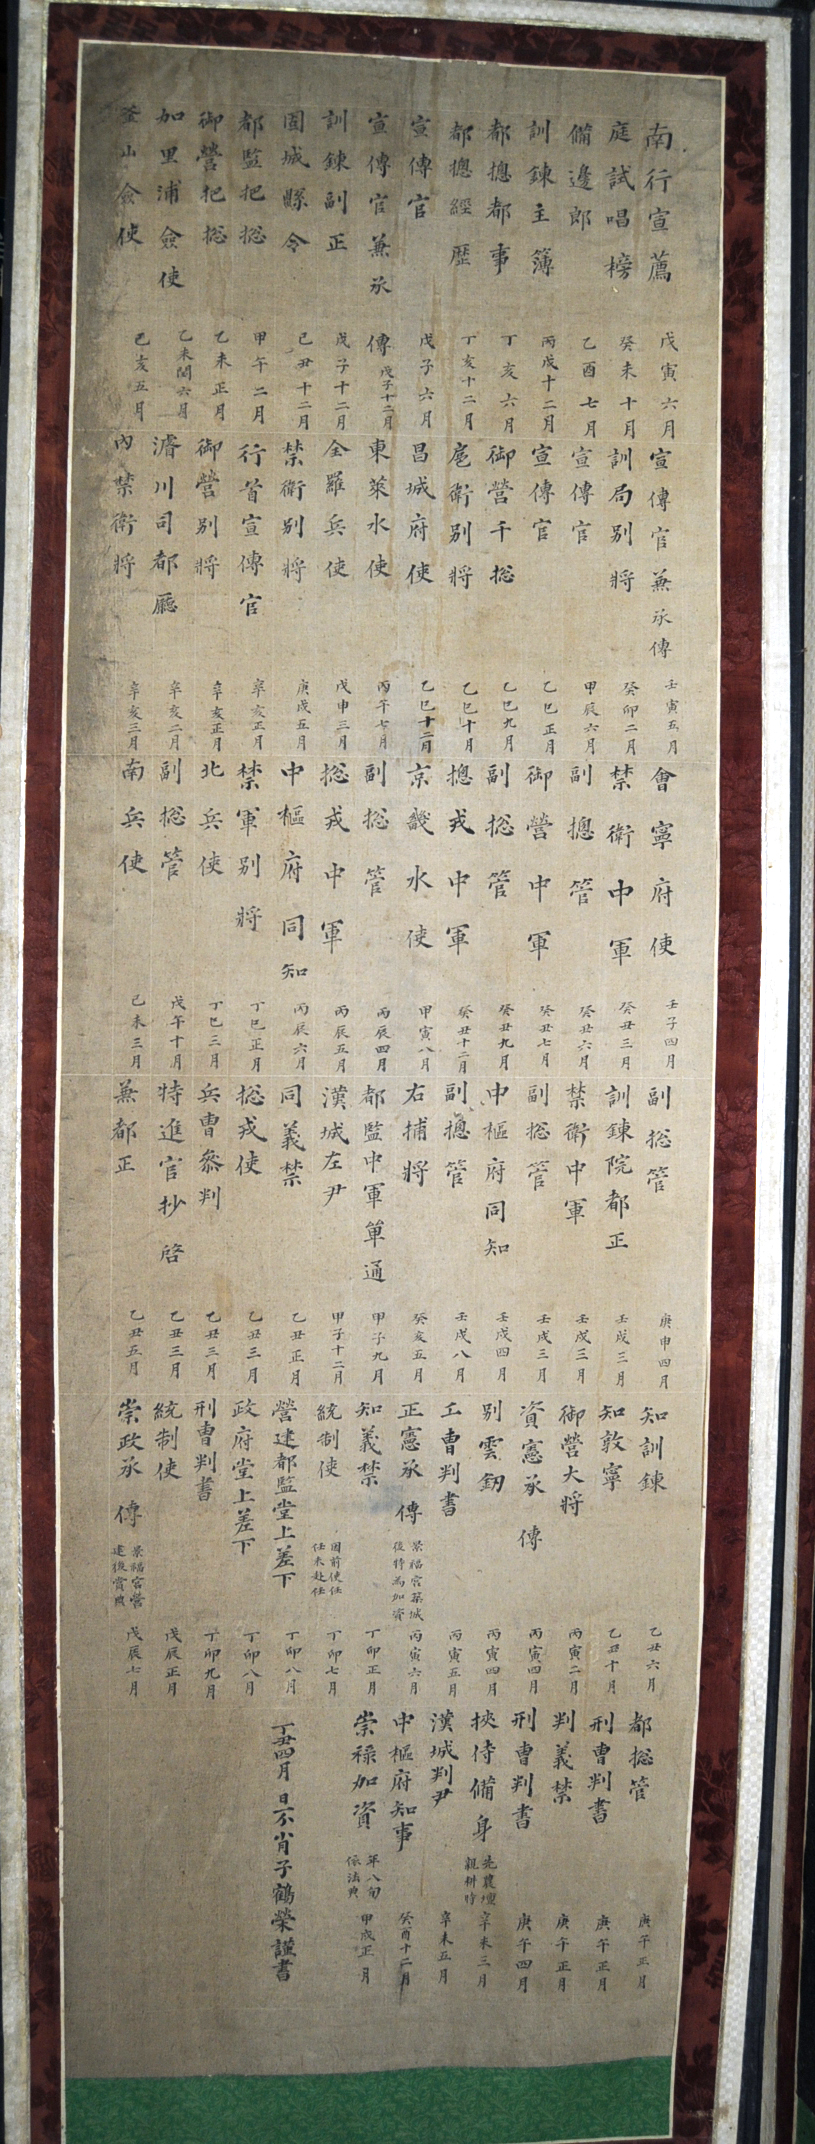 南行宣薦 戊寅六月
庭試唱榜 癸未十月
備邊郎 乙酉七月
訓鍊主簿 丙戌十二月
都摠都事 丁亥六月
都摠經歷 丁亥十二月
宣傳官 戊子六月
宣傳官兼承傳 戊子十二月
訓鍊副正 戊子十二月
固城縣令 己丑十二月
都監把摠 甲午二月
御營把摠 乙未正月
加里浦僉使 乙未閏六月
釜山僉使 己亥五月
宣傳官兼承傳 壬寅五月
訓局別將 癸卯二月
宣傳官 甲辰六月
宣傳官 乙巳正月
御營千摠 乙巳九月
扈衛別將 乙巳十月
昌城府使 乙巳十二月
東萊水使 丙午七月
全羅兵使 戊申三月
禁衛別將 庚戌五月
行首宣傳官 辛亥正月
御營別將 辛亥正月
濬川司都廳 辛亥二月
內禁衛將 辛亥三月
會寧府使 壬子四月
禁衛中軍 癸丑三月
副摠管 癸丑六月
御營中軍 癸丑七月
副摠管 癸丑九月
摠戎中軍 癸丑十二月
京畿水使 甲寅八月
副摠管 丙辰四月
摠戎中軍 丙辰五月
中樞府同知 丙辰六月
禁軍別將 丁巳正月
北兵使 丁巳三月
副摠管 戊午十月
南兵使 己未三月
副摠管 庚申四月
訓鍊院都正 壬戌三月
禁衛中軍 壬戌三月
副摠管 壬戌三月
中樞府同知 壬戌四月
副摠管 壬戌八月
右捕將 癸亥五月
都監中軍單通 甲子九月
漢城左尹 甲子十二月
同義禁 乙丑正月
摠戎使 乙丑三月
兵曹參判 乙丑三月
特進官抄啓 乙丑三月
兼都正 乙丑五月
知訓鍊 乙丑六月
知敦寧 乙丑十月
御營大將 丙寅二月
資憲承傳 丙寅四月
別雲釰 丙寅四月
工曹判書 丙寅五月
正憲承傳 景福宮築城後特為加資 丙寅六月
知義禁 丁卯正月
統制使 因前使仁任未赴任 丁卯七月
營建都監堂上差下 丁卯八月
政府堂上差下 丁卯八月
刑曹判書 丁卯九月
統制使 戊辰正月
崇政承傳 景福宮營建後賞典 戊辰七月
都摠管 庚午正月
刑曹判書 庚午正月
判義禁 庚午正月
刑曹判書 庚午四月
挾侍備身 先農壇親耕時 辛未三月
漢城判尹 辛未五月
中樞府知事 癸酉十二月
崇祿加資 年八旬依法典 甲戌正月
丁丑四月 日不肖子鶴榮謹書